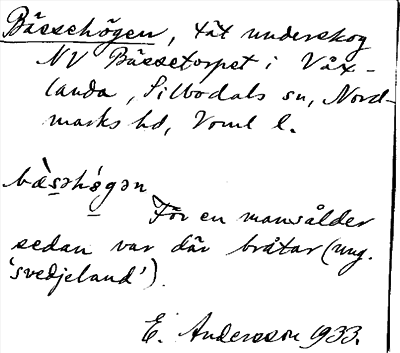 Bässehögen, tät underskog
NV Bässetorpet i Våx-
landa, Silbodals sn, Nord-
marks hd, Vrml l.
bæ̀səhǿgən
För en mansålder
sedan var där bråtar (ung.
'svedjeland').
E. Andersson 1933.